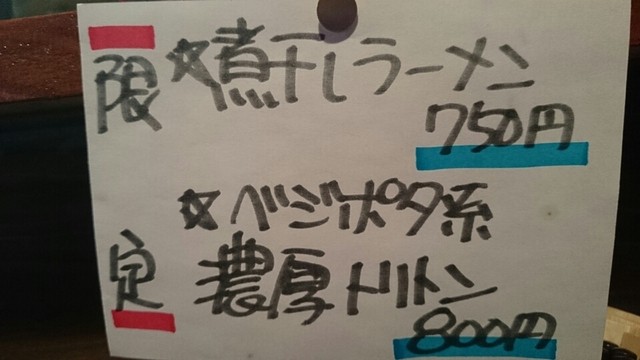 限定
☆煮干しラーメン
750円
☆ベジポタ系
濃厚トリトン
800円